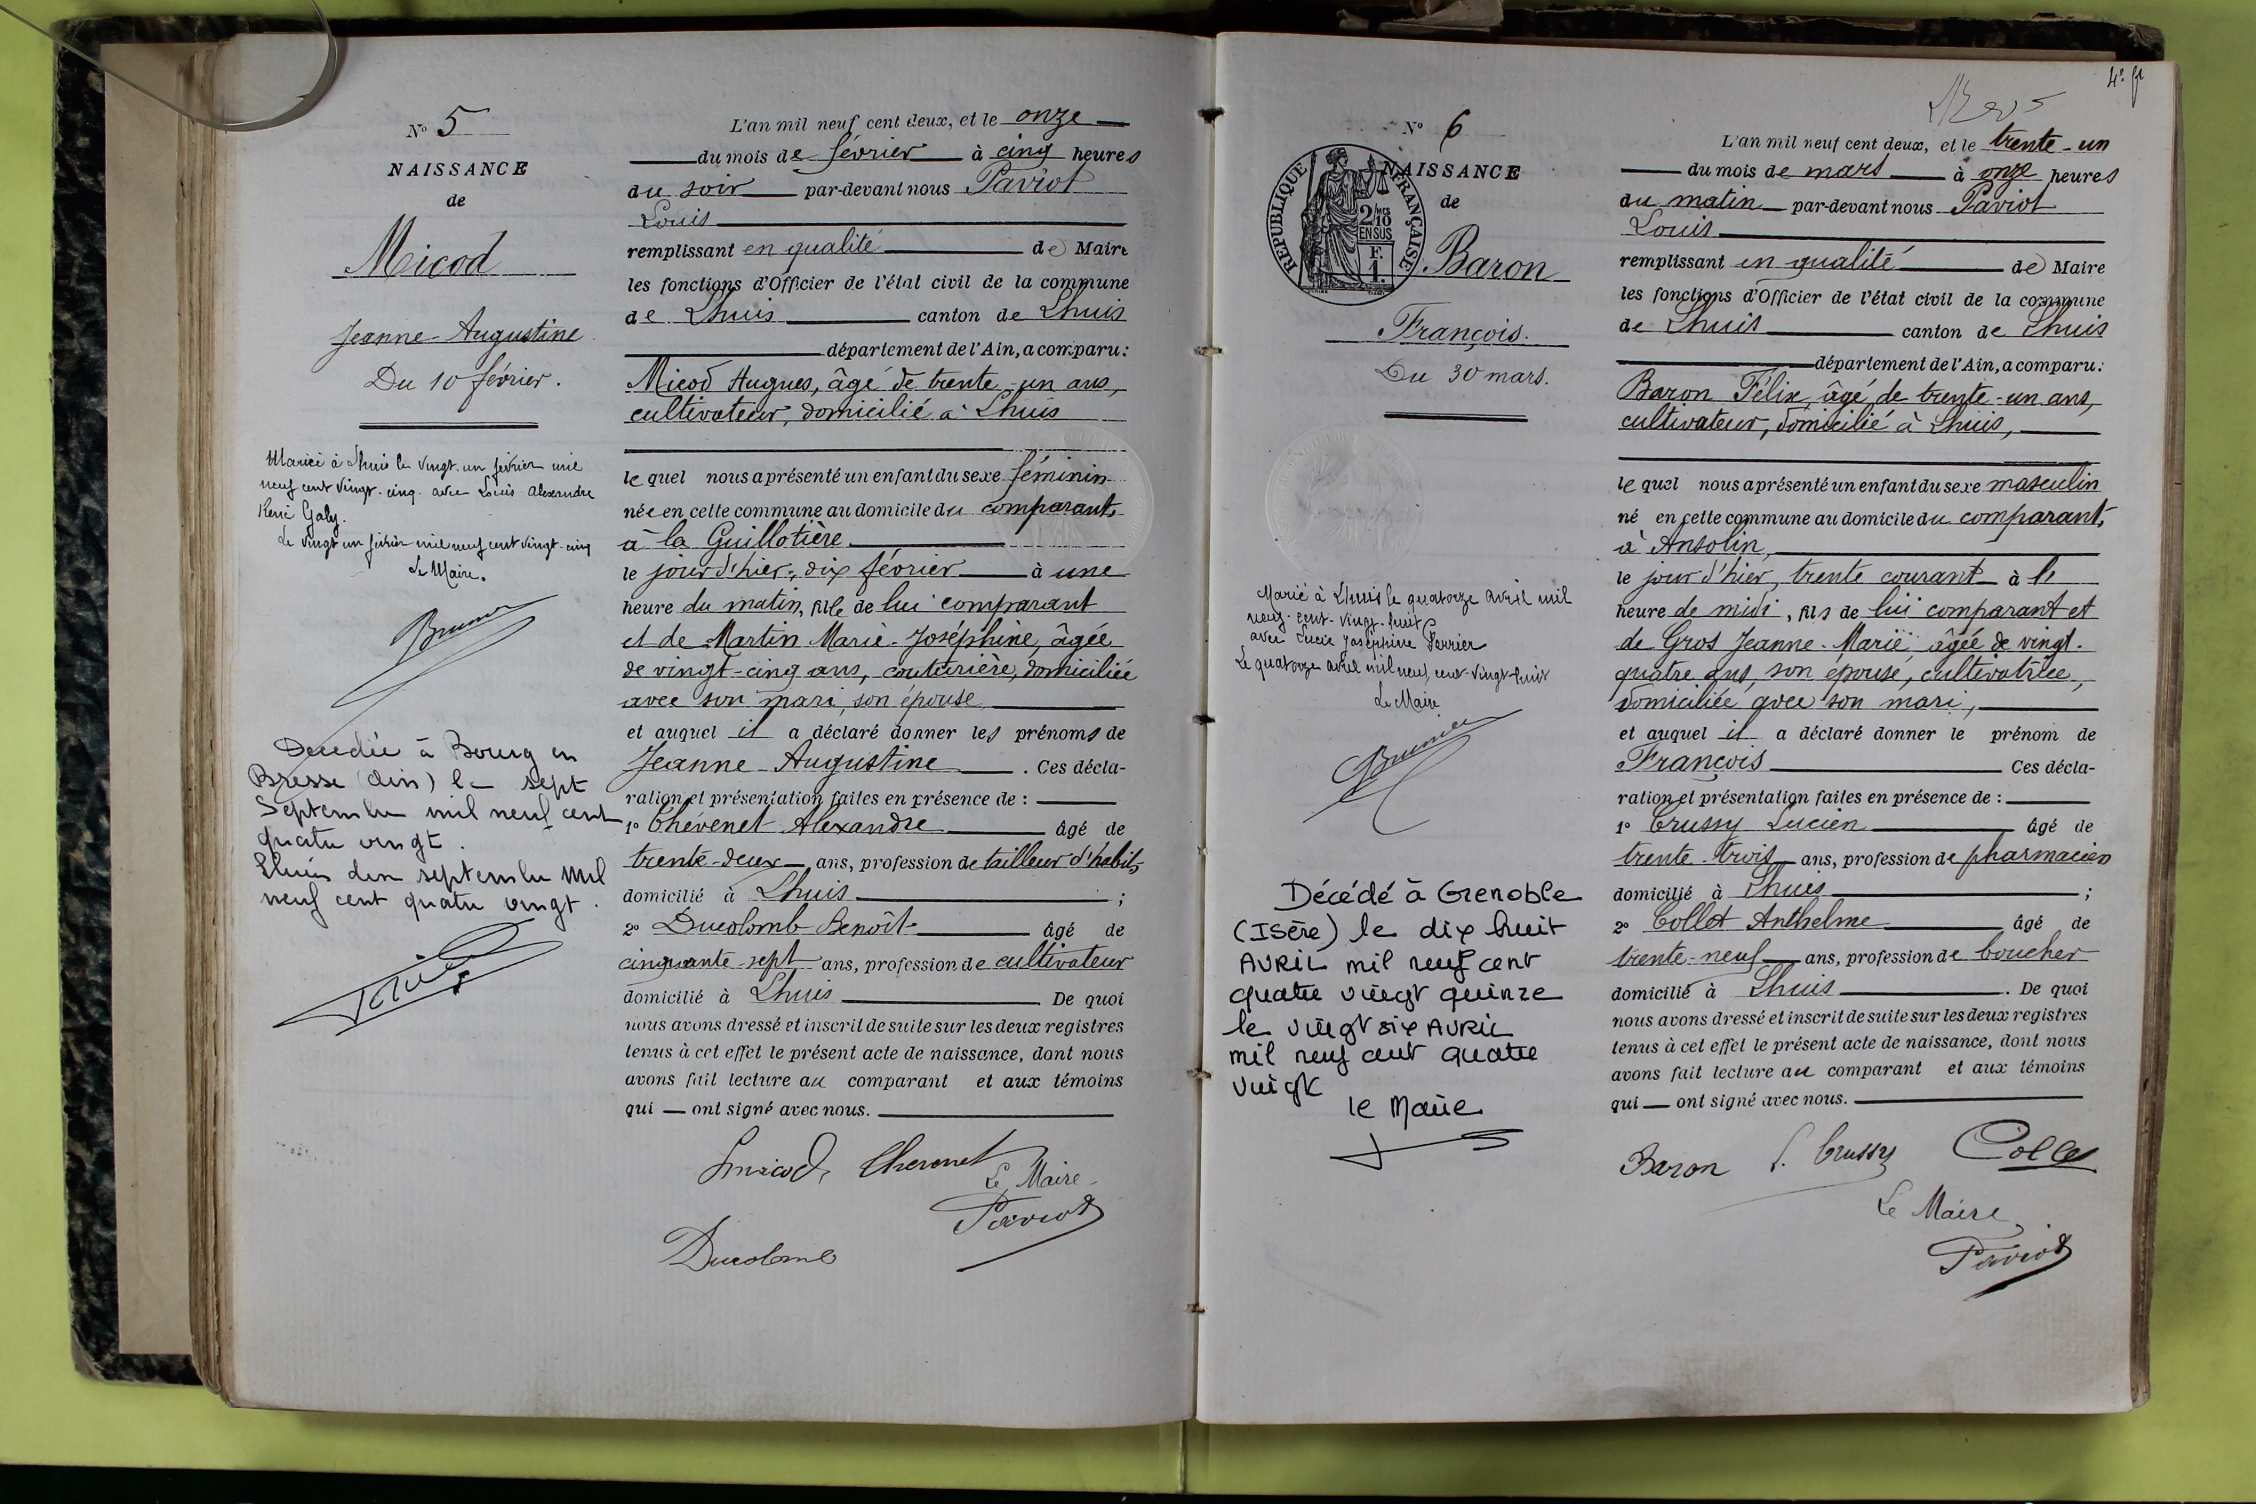 N° 5
NAISSANCE
de
Micod
Jeanne-Augustine
Du 10 février.
Mariée à Lhuis le vingt-un février mil
neuf cent vingt-cinq avec Louis Alexandre
René Galy.
Le vingt un février mil neuf cent vingt-cinq
Le Maire.
Décédée à Bourg en
Bresse (Ain) le sept
Septembre mil neuf cent
quatre vingt.
Lhuis septembre mil
neuf cent quatre vingt.
L'an mil neuf cent deux, et le onze
du mois de février à cinq heures
du soir par-devant nous Paviot
Louis
remplissant en qualité de Maire
les fonctions d'Officier de l'état civil de la commune
de Lhuis canton de Lhuis
département de l'Ain, a comparu:
Micod Hugues, âgé de trente-un ans,
cultivateur, domicilié à Lhuis
le quel nous a présenté un enfant du sexe féminin
née en cette commune au domicile du comparant,
à la Guillotière
le jour d'hier, dix février à une
heure du matin, fille de lui comparant
et de Martin Marie-Joséphine, âgée
de vingt-cinq ans, couturière, domiciliée
avec son mari, son épouse
et auquel il a déclaré donner les prénoms de
Jeanne-Augustine. Ces décla-
ration et présentation faites en présence de :
1° Chévenet Alexandre âgé de
trente-deux ans, profession de tailleur d'habits,
domicilié à Lhuis ;
2° Ducolomb Benoît âgé de
cinquante-sept ans, profession de cultivateur
domicilié à Lhuis De quoi
nous avons dressé et inscrit de suite sur les deux registres
tenus à cet effet le présent acte de naissance, dont nous
avons fait lecture au comparant et aux témoins
qui — ont signé avec nous.
Micod, Chevenet
Le Maire
Paviot
Ducolomb
4e
N° 6
NAISSANCE
de
REPUBLIQUE FRANÇAISE
2/10 EN SUS
F. 1.
Baron
François.
Du 30 mars.
Marié à Lhuis le quatorze avril mil
neuf-cent-vingt-huit
avec Lucie Joséphine Perrier
Le quatorze avril mil neuf cent-vingt-huit
Le Maire
Décédé à Grenoble
(Isère) le dix huit
AVRIL mil neuf cent
quatre vingt quinze
le vingt six AVRIL
mil neuf cent quatre
vingt
le Maire
L'an mil neuf cent deux, et le trente-un
du mois de mars à onze heures
du matin par-devant nous Paviot
Louis
remplissant en qualité de Maire
les fonctions d'Officier de l'état civil de la commune
de Lhuis canton de Lhuis
département de l'Ain, a comparu:
Baron Félix, âgé de trente-un ans,
cultivateur, domicilié à Lhuis,
le quel nous a présenté un enfant du sexe masculin
né en cette commune au domicile du comparant,
à Ansolin,
le jour d'hier, trente courant à l'
heure de midi, fils de lui comparant et
de Gros Jeanne-Marie âgée de vingt-
quatre ans, son épouse, cultivatrice,
domiciliée avec son mari,
et auquel il a déclaré donner le prénom de
François Ces décla-
ration et présentation faites en présence de :
1° Crussy Lucien âgé de
trente-trois ans, profession de pharmacien
domicilié à Lhuis ;
2° Collet Anthelme âgé de
trente-neuf ans, profession de boucher
domicilié à Lhuis. De quoi
nous avons dressé et inscrit de suite sur les deux registres
tenus à cet effet le présent acte de naissance, dont nous
avons fait lecture au comparant et aux témoins
qui — ont signé avec nous.
Baron L. Crussy Collet
Le Maire
Paviot